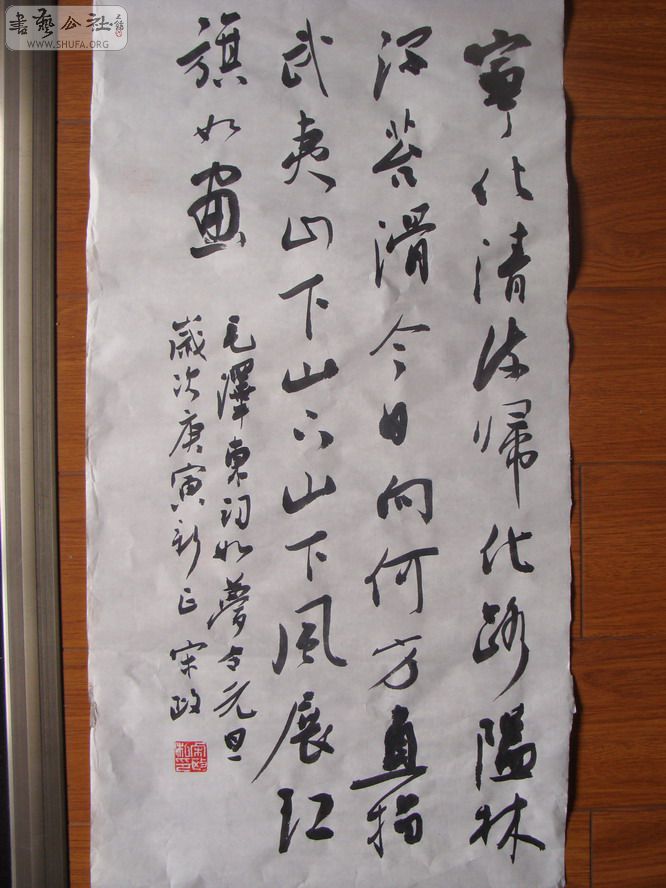 書藝公社
WWW.SHUFA.ORG
寧化清流歸化路隘林
深苔滑今日向何方直指
武夷山下山下山下風展紅
旗如畫
毛澤東詞如夢令元旦
歲次庚寅新正 宋政